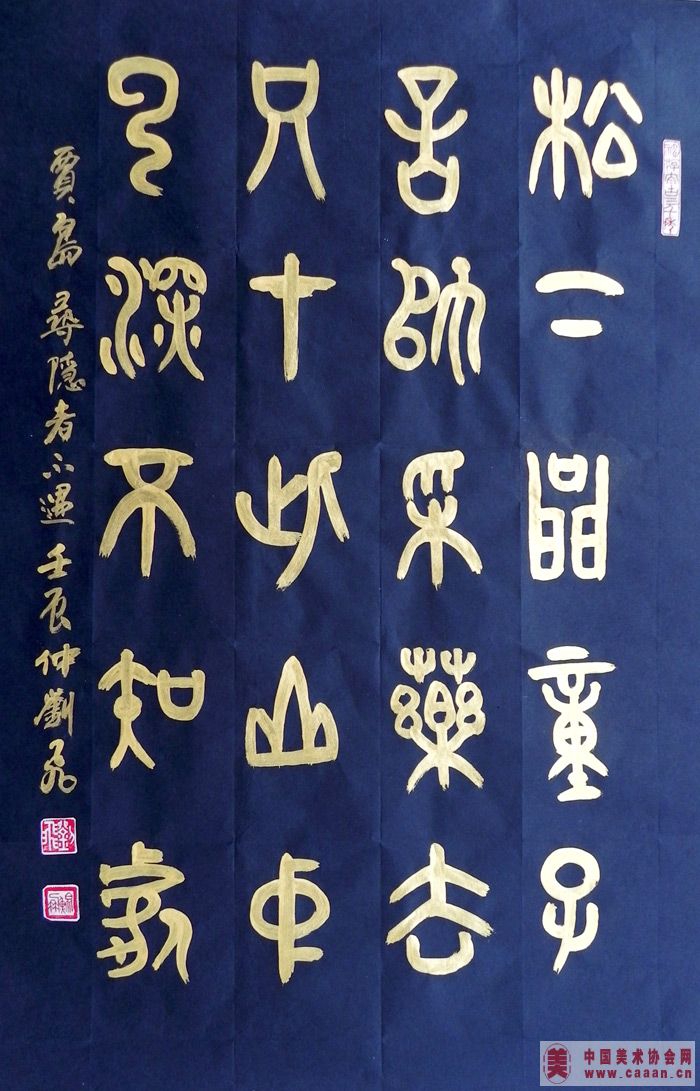 松下問童子
言師采藥去
只在此山中
云深不知處
賈島尋隱者不遇 壬辰仲劉
美 中国美术协会网
www.caaan.cn